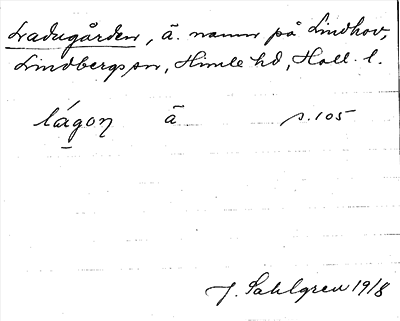 Ladugården, ä. namn på Lindhov,
Lindbergs sn, Himle hd, Hall. l.
lágon ä p.105
J. Sahlgren 1918